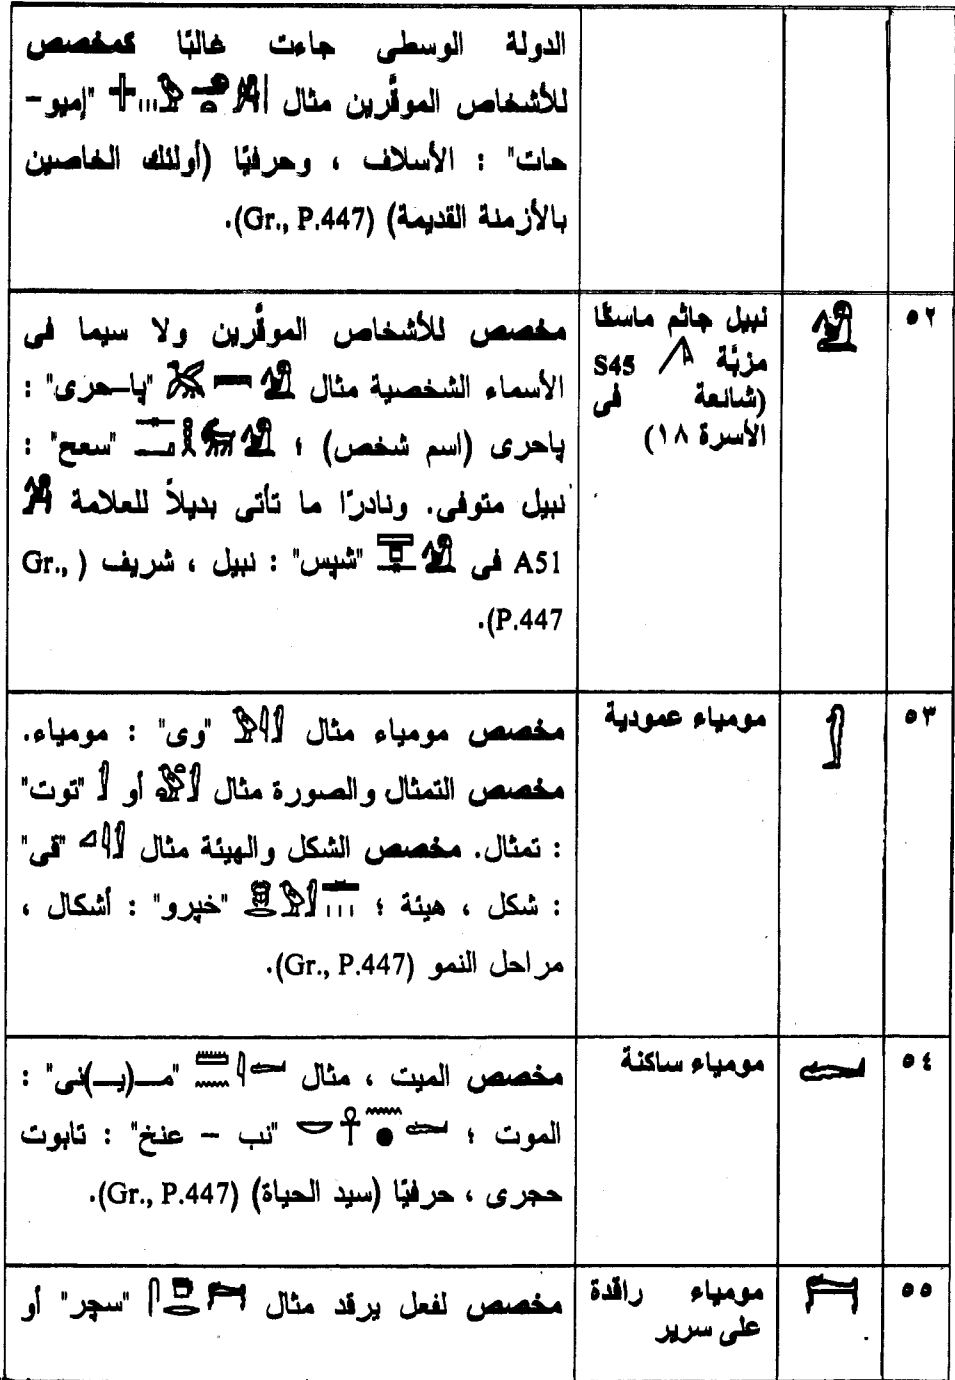 الدولة الوسطى جاءت غالبًا كمخصص
للأشخاص الموقَّرين مثال "إميو-
حات" : الأسلاف ، وحرفيًا (أولئك الخاصين
بالأزمنة القديمة) (Gr., P.447).
٥٢
نبيل جاثم ماسكًا
مزبَّة S45
(شائعة فى
الأسرة ١٨)
مخصص للأشخاص الموقَّرين ولا سيما فى
الأسماء الشخصية مثال "پا-حرى" :
پاحرى (اسم شخص) ؛ "سعح" :
نبيل متوفى. ونادرًا ما تأتى بديلاً للعلامة
A51 فى "شپس" : نبيل ، شريف (Gr.,
P.447).
٥٣
مومياء عمودية
مخصص مومياء مثال "وى" : مومياء.
مخصص التمثال والصورة مثال أو "توت"
: تمثال. مخصص الشكل والهيئة مثال "قى"
: شكل ، هيئة ؛ "خپرو" : أشكال ،
مراحل النمو (Gr., P.447).
٥٤
مومياء ساكنة
مخصص الميت ، مثال "مـ(يـ)نى" :
الموت ؛ "نب - عنخ" : تابوت
حجرى ، حرفيًا (سيد الحياة) (Gr., P.447).
٥٥
مومياء راقدة
على سرير
مخصص لفعل يرقد مثال "سچر" أو